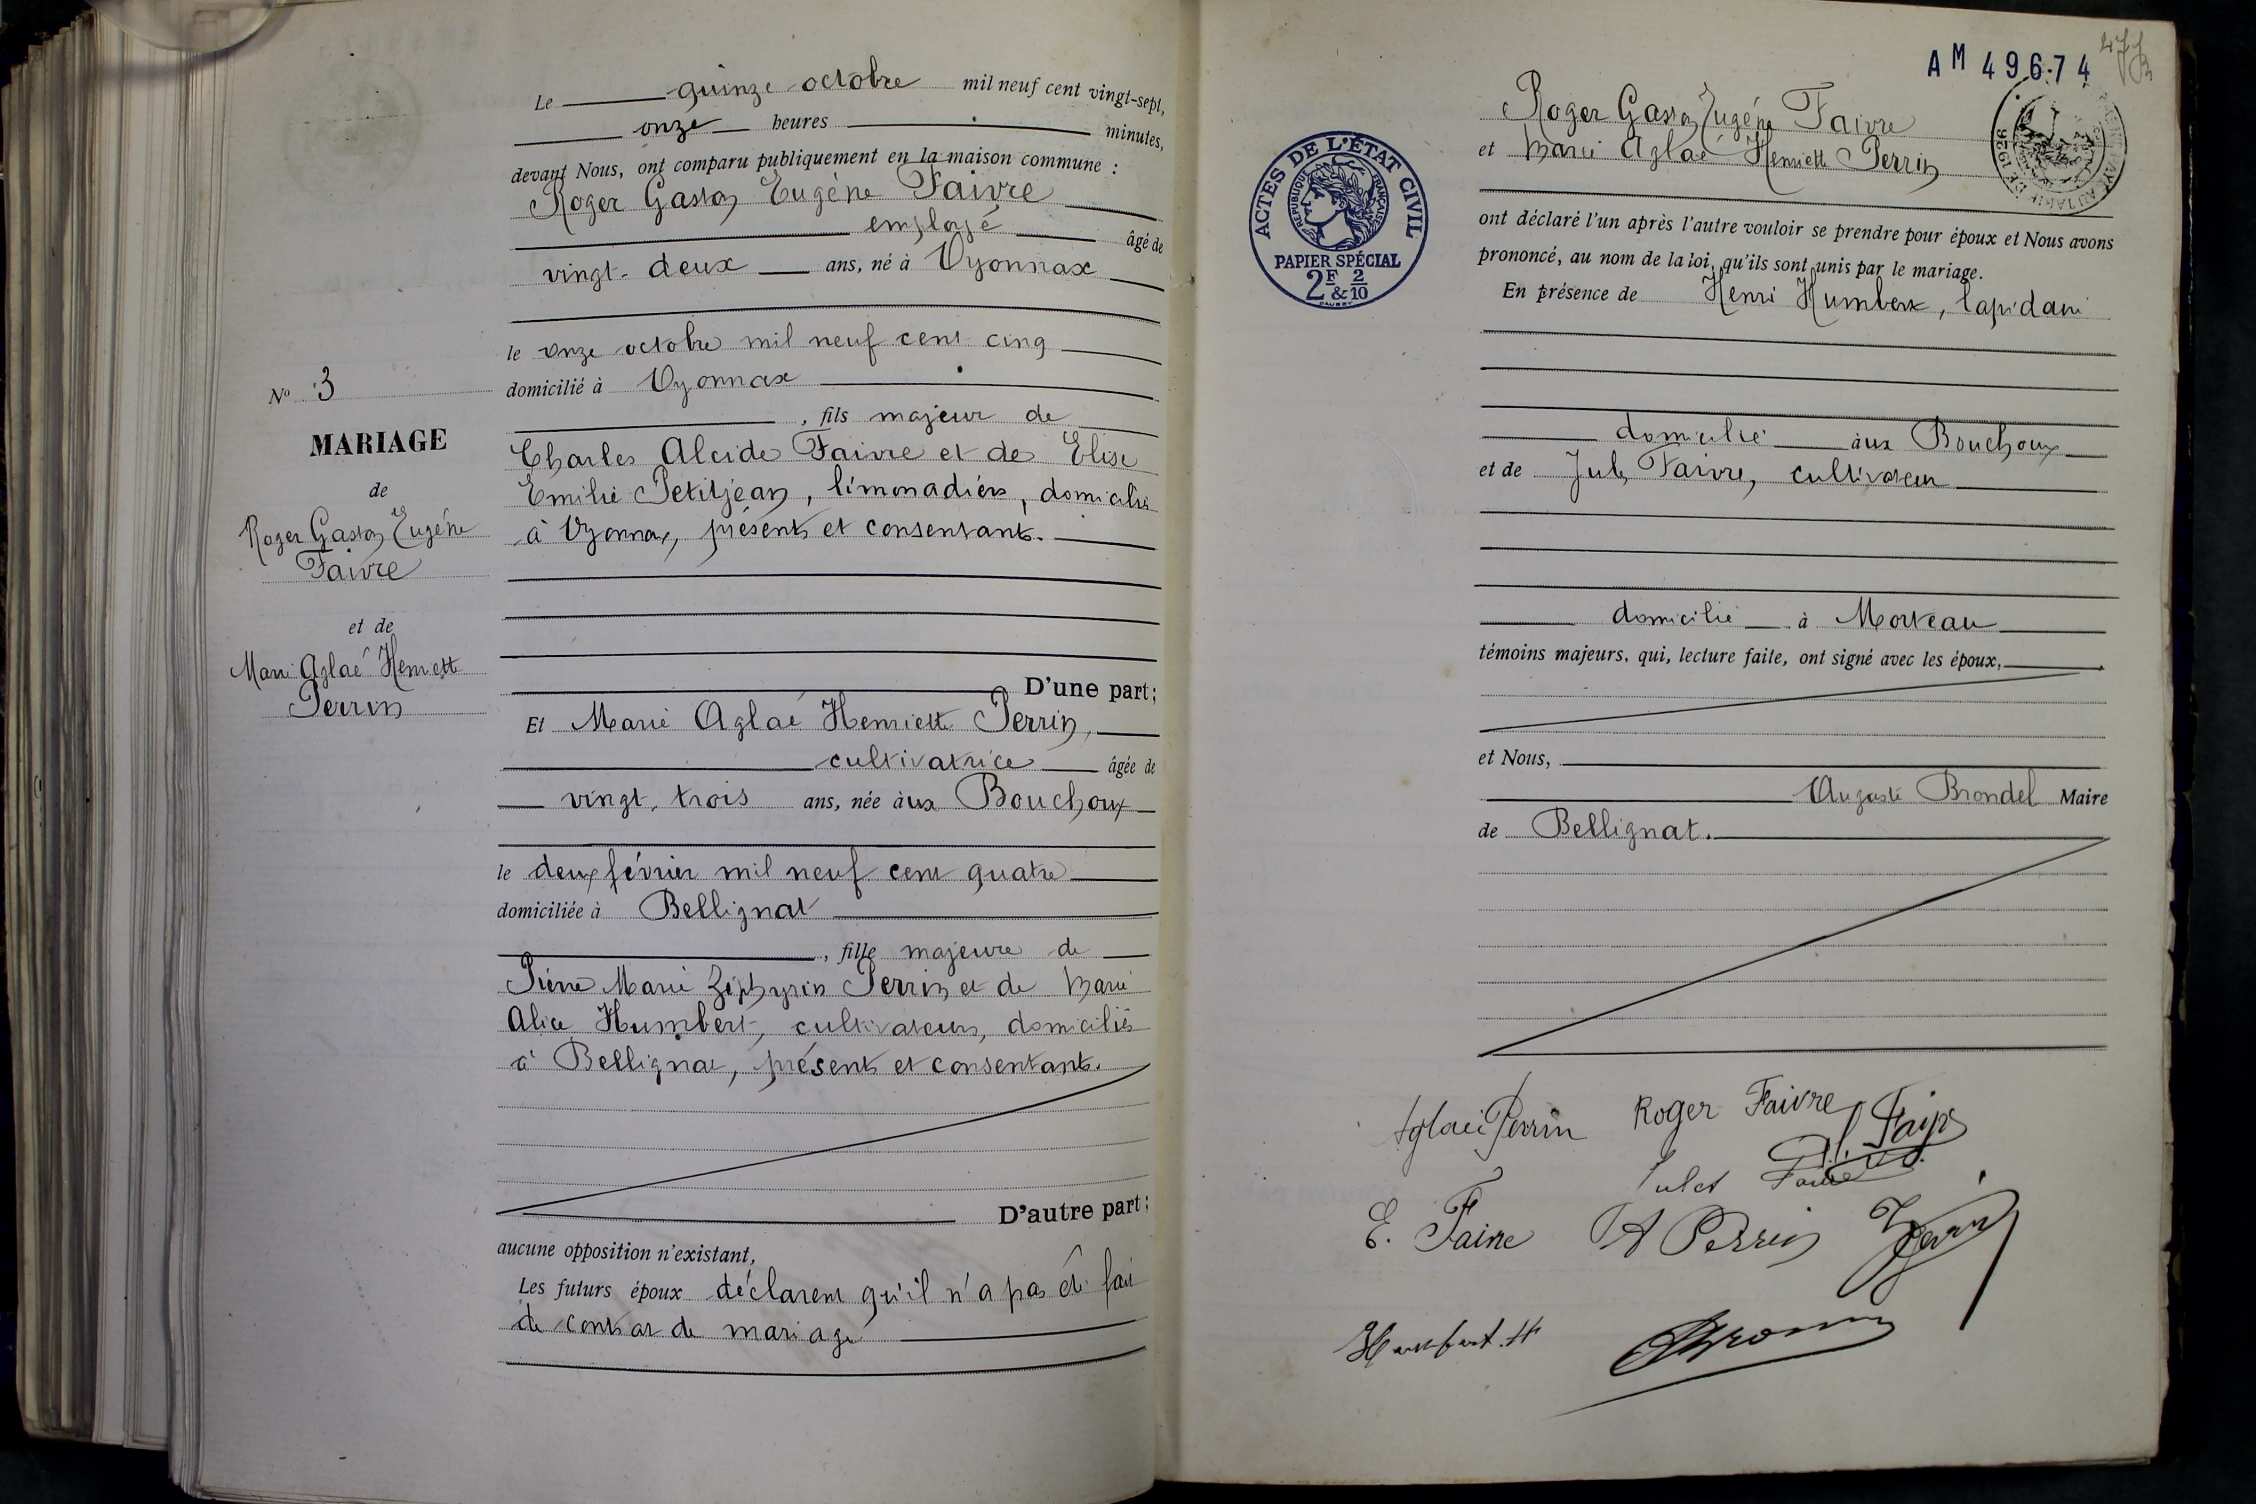 Le quinze octobre mil neuf cent vingt-sept,
onze heures minutes,
devant Nous, ont comparu publiquement en la maison commune :
Roger Gaston Eugène Faivre
employé âgé de
vingt-deux ans, né à Oyonnax
le onze octobre mil neuf cent cinq
domicilié à Oyonnax
, fils majeur de
Charles Alcide Faivre et de Elise
Emilie Petitjean, limonadiers, domiciliés
à Oyonnax, présents et consentants.
D'une part ;
Et Marie Aglaé Henriette Perrin,
cultivatrice âgée de
vingt-trois ans, née aux Bouchoux
le deux février mil neuf cent quatre
domiciliée à Bellignat
, fille majeure de
Pierre Marie Zéphyrin Perrin et de Marie
Alice Humbert, cultivateurs, domiciliés
à Bellignat, présents et consentants.
D'autre part :
aucune opposition n'existant,
Les futurs époux déclarent qu'il n'a pas été fait
de contrat de mariage
No 3
MARIAGE
de
Roger Gaston Eugène
Faivre
et de
Marie Aglaé Henriette
Perrin
AM 49674
Roger Gaston Eugène Faivre
et Marie Aglaé Henriette Perrin
ont déclaré l'un après l'autre vouloir se prendre pour époux et Nous avons
prononcé, au nom de la loi, qu'ils sont unis par le mariage.
En présence de Henri Humbert, lapidaire
domicilié aux Bouchoux
et de Jules Faivre, cultivateur
domicilié à Morteau
témoins majeurs, qui, lecture faite, ont signé avec les époux,
et Nous,
Auguste Brondel Maire
de Bellignat.
Aglaé Perrin Roger Faivre
Jules Faivre
E. Faivre A Perrin
Humbert. H
ACTES DE L'ÉTAT CIVIL
RÉPUBLIQUE FRANÇAISE
PAPIER SPÉCIAL
2F & 2/10
1926